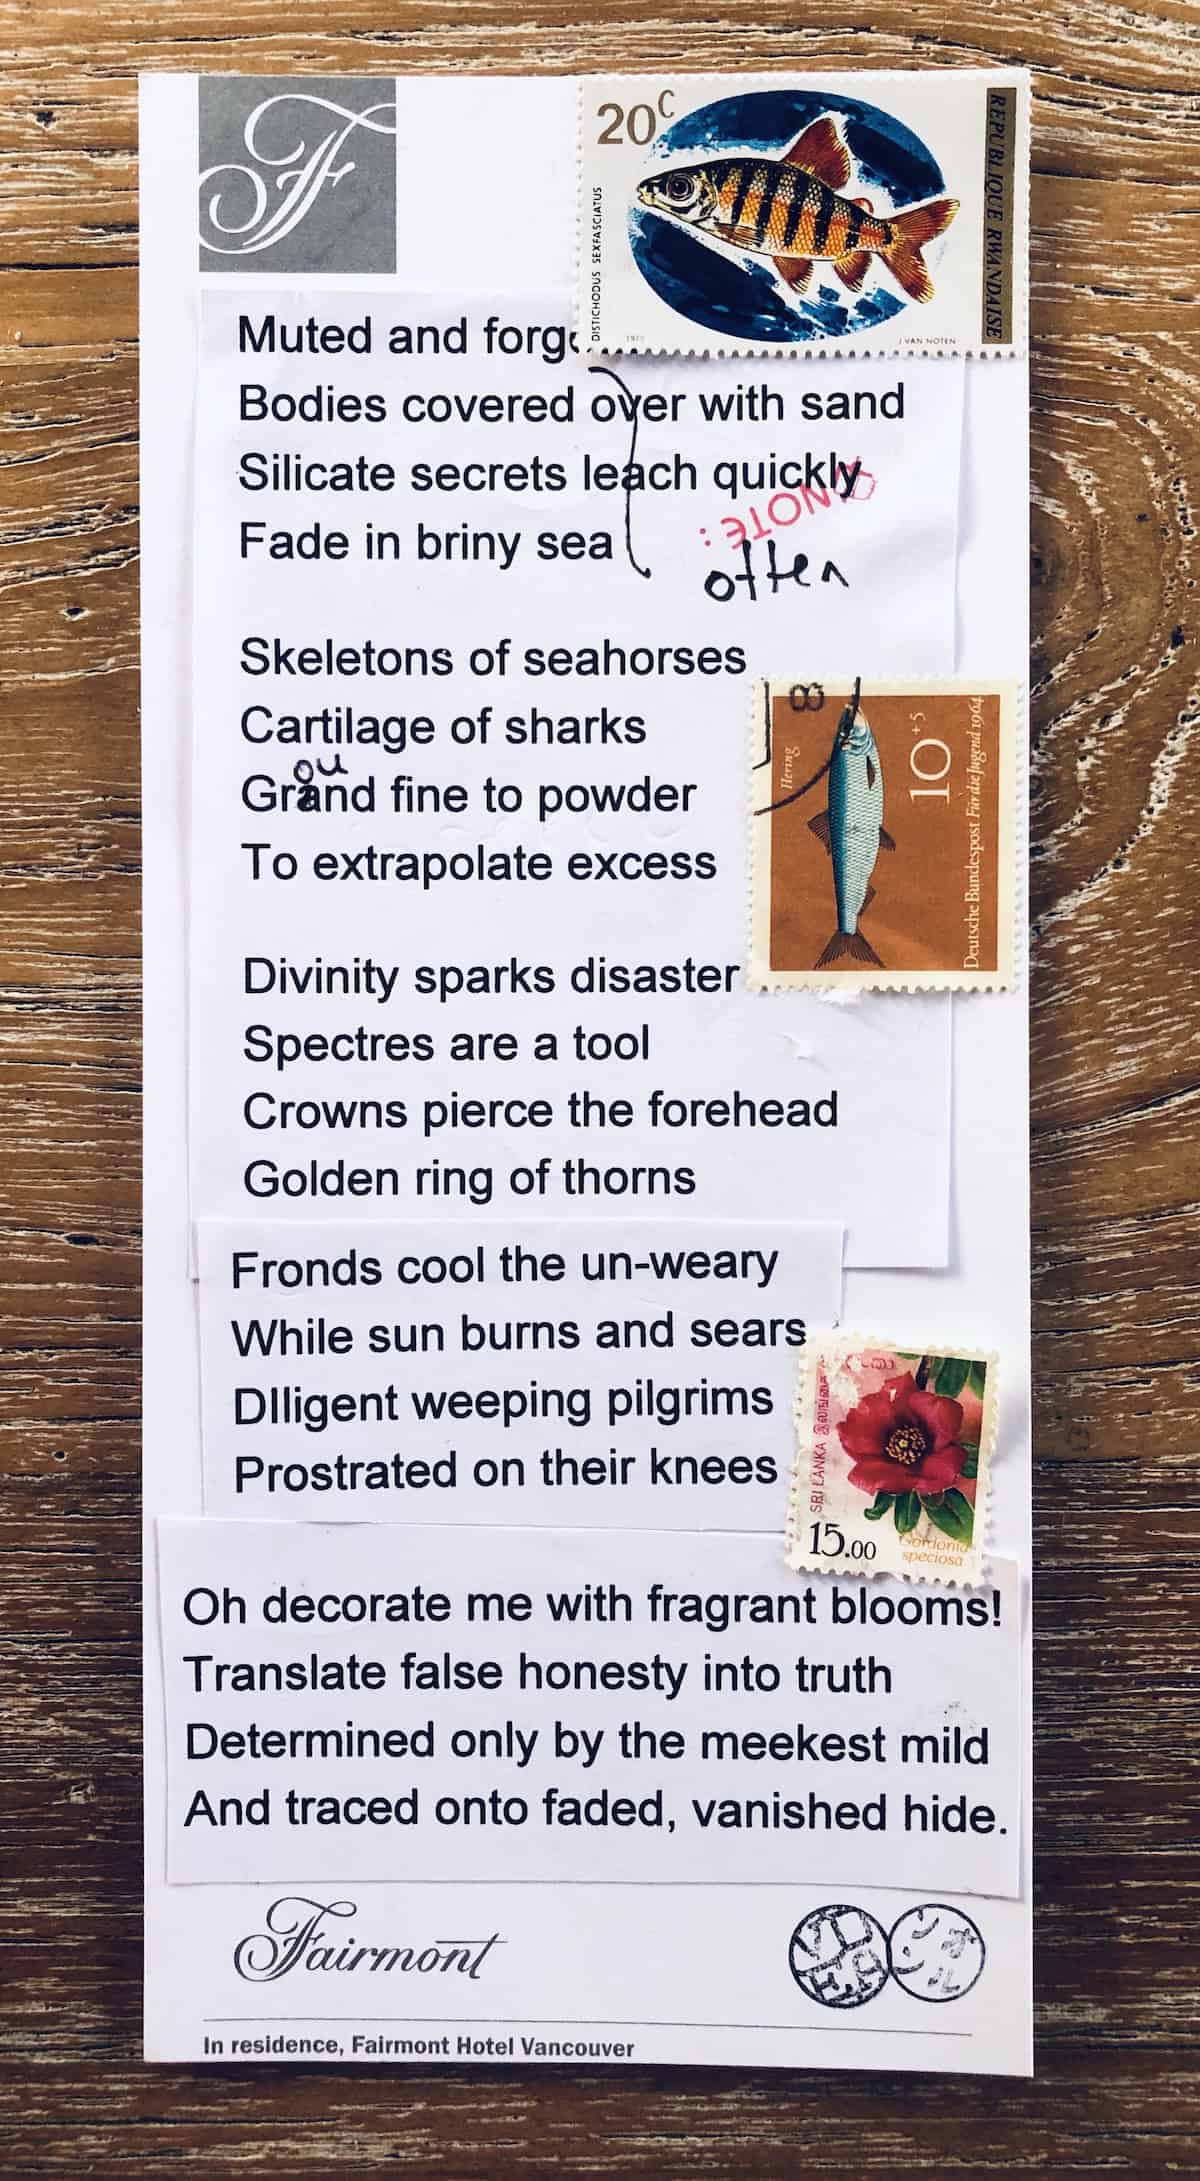 F
20c
REPUBLIQUE RWANDAISE
DISTICHODUS SEXFASCIATUS
J. VAN NOTEN
Muted and forgo
Bodies covered over with sand
Silicate secrets leach quickly
Fade in briny sea
NOTE:
often
Skeletons of seahorses
Cartilage of sharks
ou
Grand fine to powder
To extrapolate excess
8
Hering
10+5
Deutsche Bundespost Für die Jugend 1964
Divinity sparks disaster
Spectres are a tool
Crowns pierce the forehead
Golden ring of thorns
Fronds cool the un-weary
While sun burns and sears
DIligent weeping pilgrims
Prostrated on their knees
SRI LANKA
15.00
Gordonia
speciosa
Oh decorate me with fragrant blooms!
Translate false honesty into truth
Determined only by the meekest mild
And traced onto faded, vanished hide.
Fairmont
In residence, Fairmont Hotel Vancouver